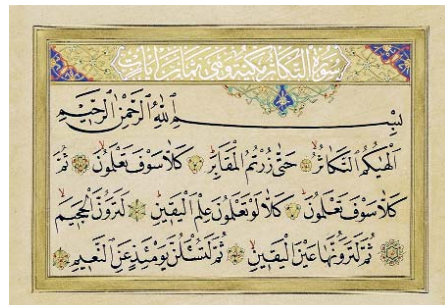 سورة التكاثر مكية وهي ثمان آيات
بسم الله الرحمن الرحيم
ألهيكم التكاثر حتى زرتم المقابر كلا سوف تعلمون ثم
كلا سوف تعلمون كلا لو تعلمون علم اليقين لترون الجحيم
ثم لترونها عين اليقين ثم لتسئلن يومئذ عن النعيم